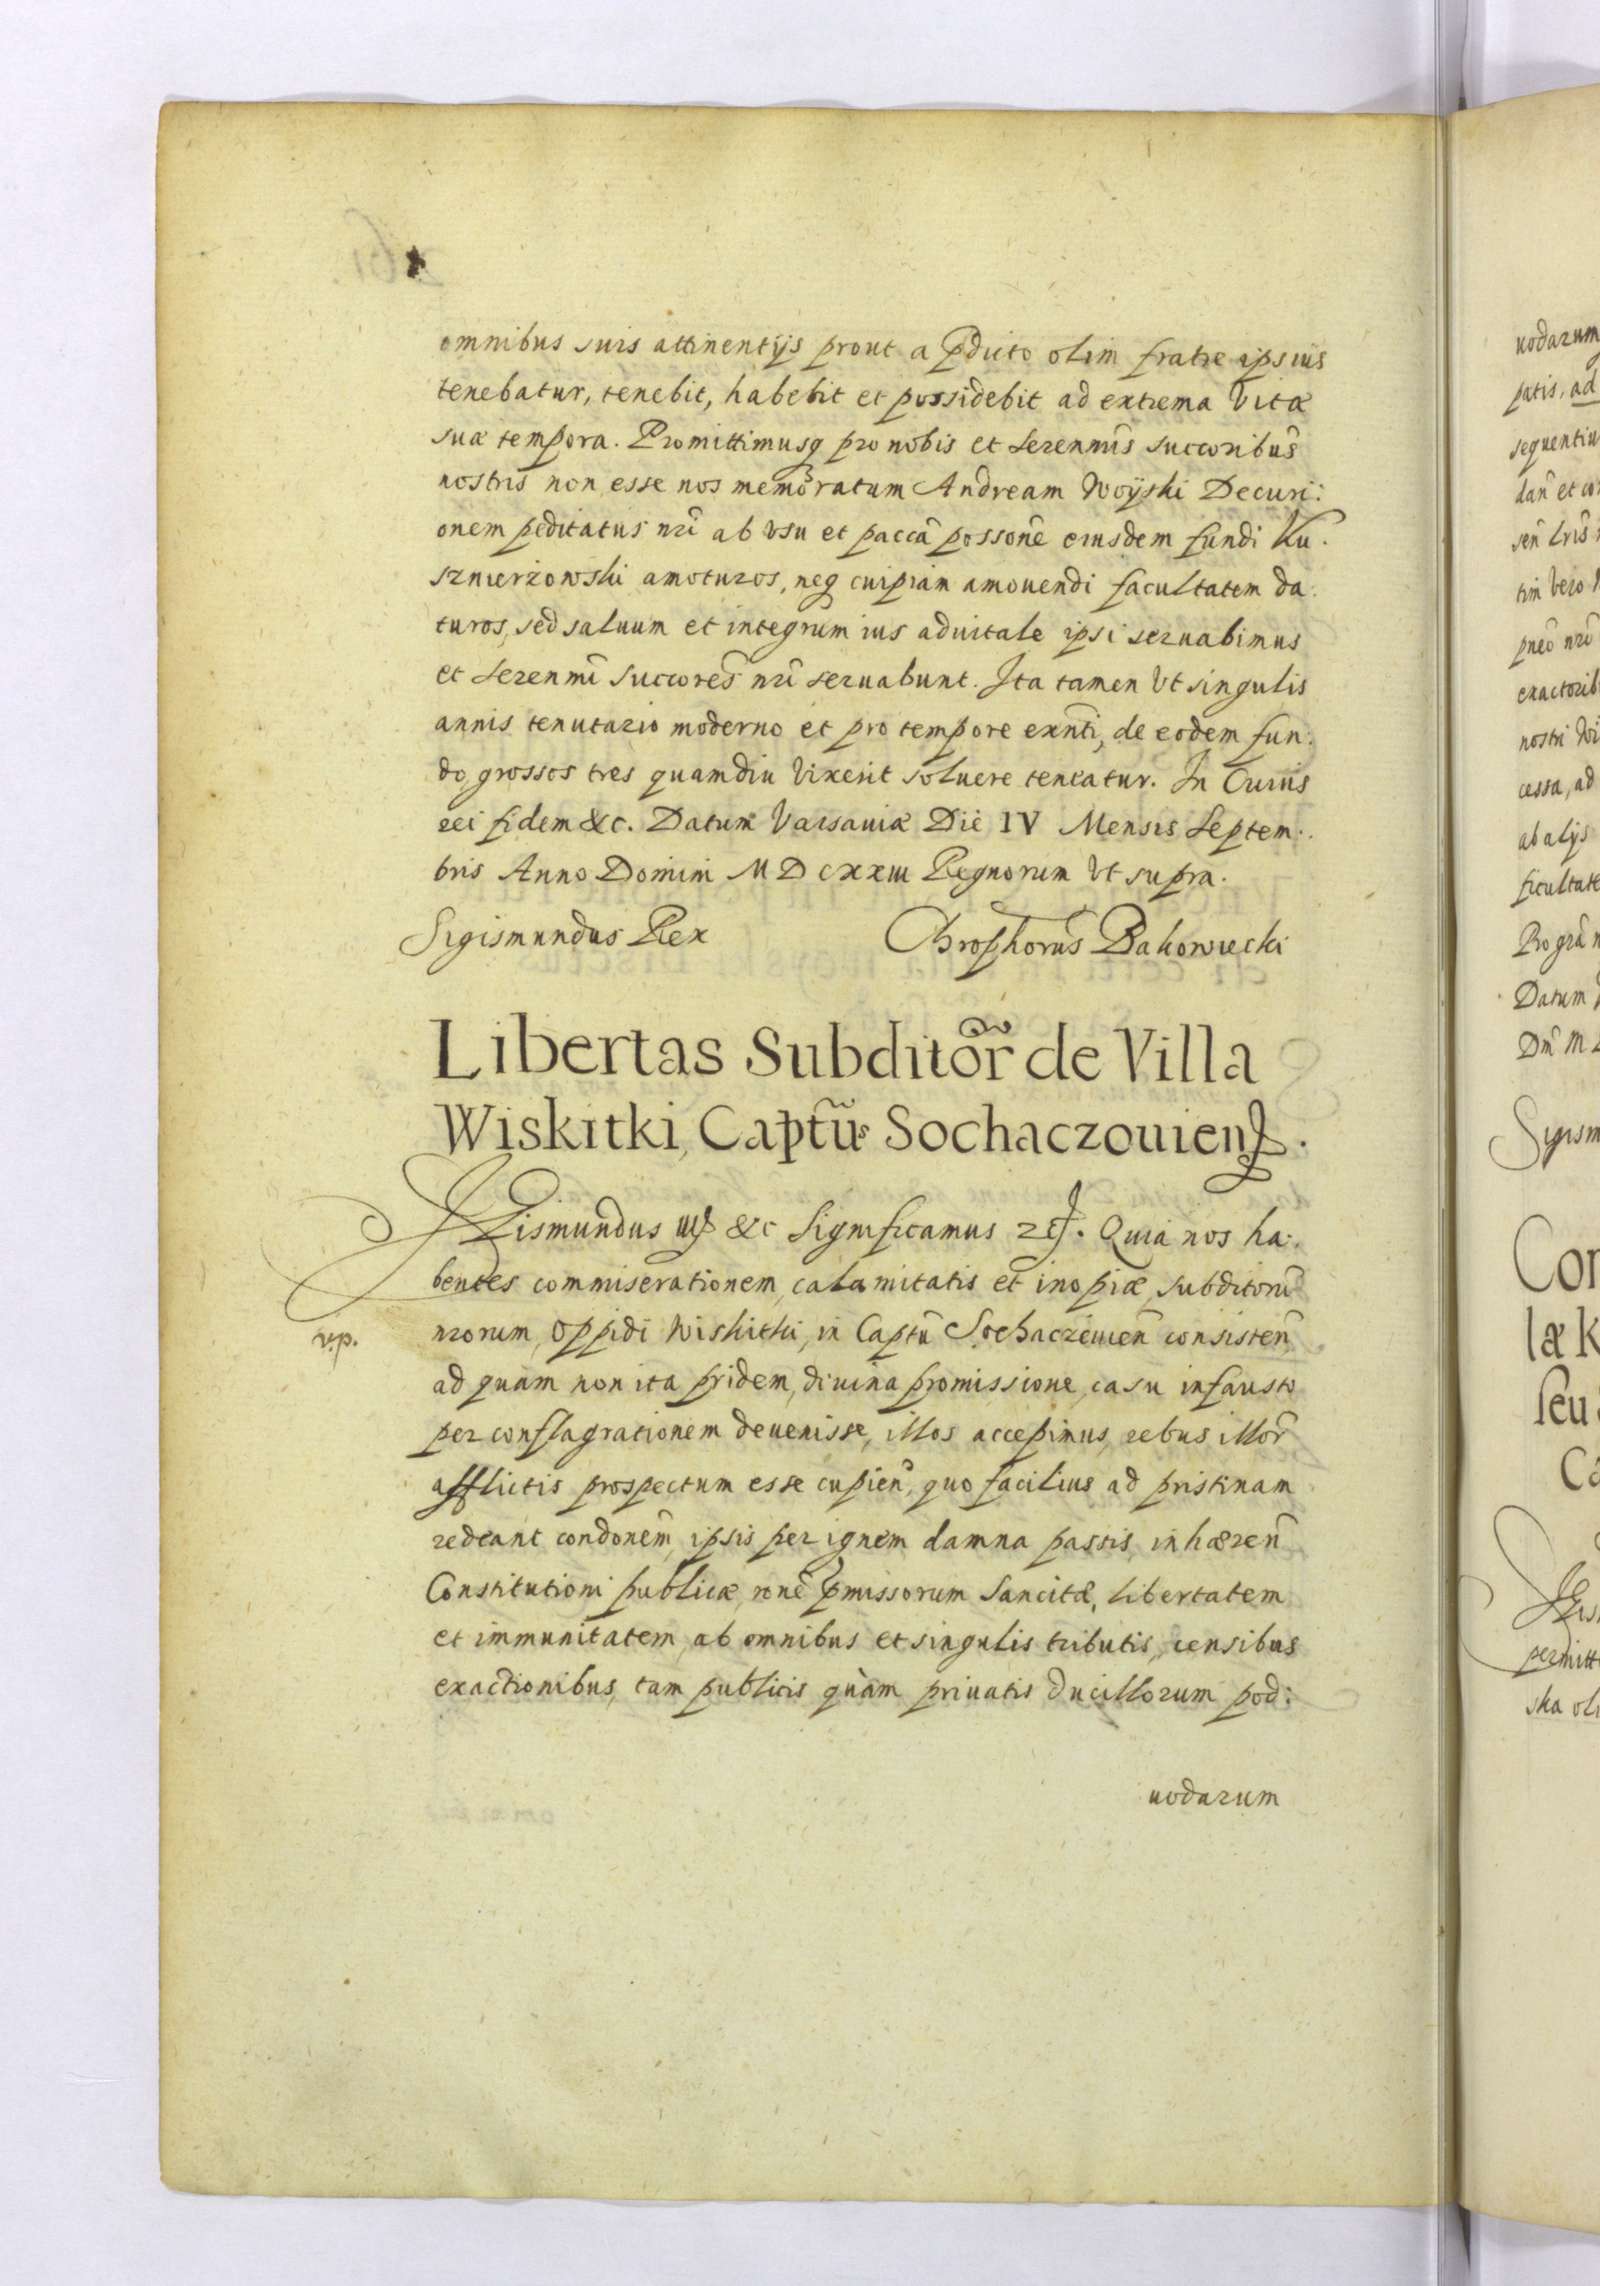 omnibus suis attinentijs prout a pdicto olim fratre ipsius
tenebatur, tenebit, habebit et possidebit ad extrema Vitæ
suæ tempora. Promittimusq pro nobis et Serenmis succoribus
nostris non esse nos memoratum Andream Woÿski Decuri:
onem peditatus nri ab vsu et paccã possone eiusdem fundi Ku.
sznierzowski amoturos, neq cuipiam amouendi facultatem da.
turos, sed saluum et integrum ius aduitale ipsi seruabimus
et Serenmi Succores nri seruabunt. Ita tamen Vt singulis
annis tenutario moderno et pro tempore exnti, de eodem fun:
do grossos tres quamdiu Vixerit soluere teneatur. In Cuius
rei fidem &c. Datum Varsauiæ Die IV Mensis Septem.
bris Anno Domini M D C XX III Regnorum Vt supra.
Sigismundus Rex Chrosphorus Bakowiecki
Libertas Subditor de Villa
Wiskitki, Captus Sochaczouiens.
Sigismundus III &c Significamus &c. Quia nos ha.
bentes commiserationem, calamitatis et inopiæ, subditoru
nrorum, Oppidi Wiskitki, in Captu Sochaczeuien consisten,
ad quam non ita pridem, diuina promissione, casu infausto
per conflagrationem deuenisse, illos accepimus, rebus illor
afflictis prospectum esse cupien, quo facilius ad pristinam
redeant condonem, ipsis per ignem damna passis, inhæren
Constitutioni publicæ, rone pmissorum Sancitæ, libertatem
et immunitatem, ab omnibus et singulis tributis, censibus
exactionibus, tam publicis quàm priuatis Ducillorum pod:
uodarum